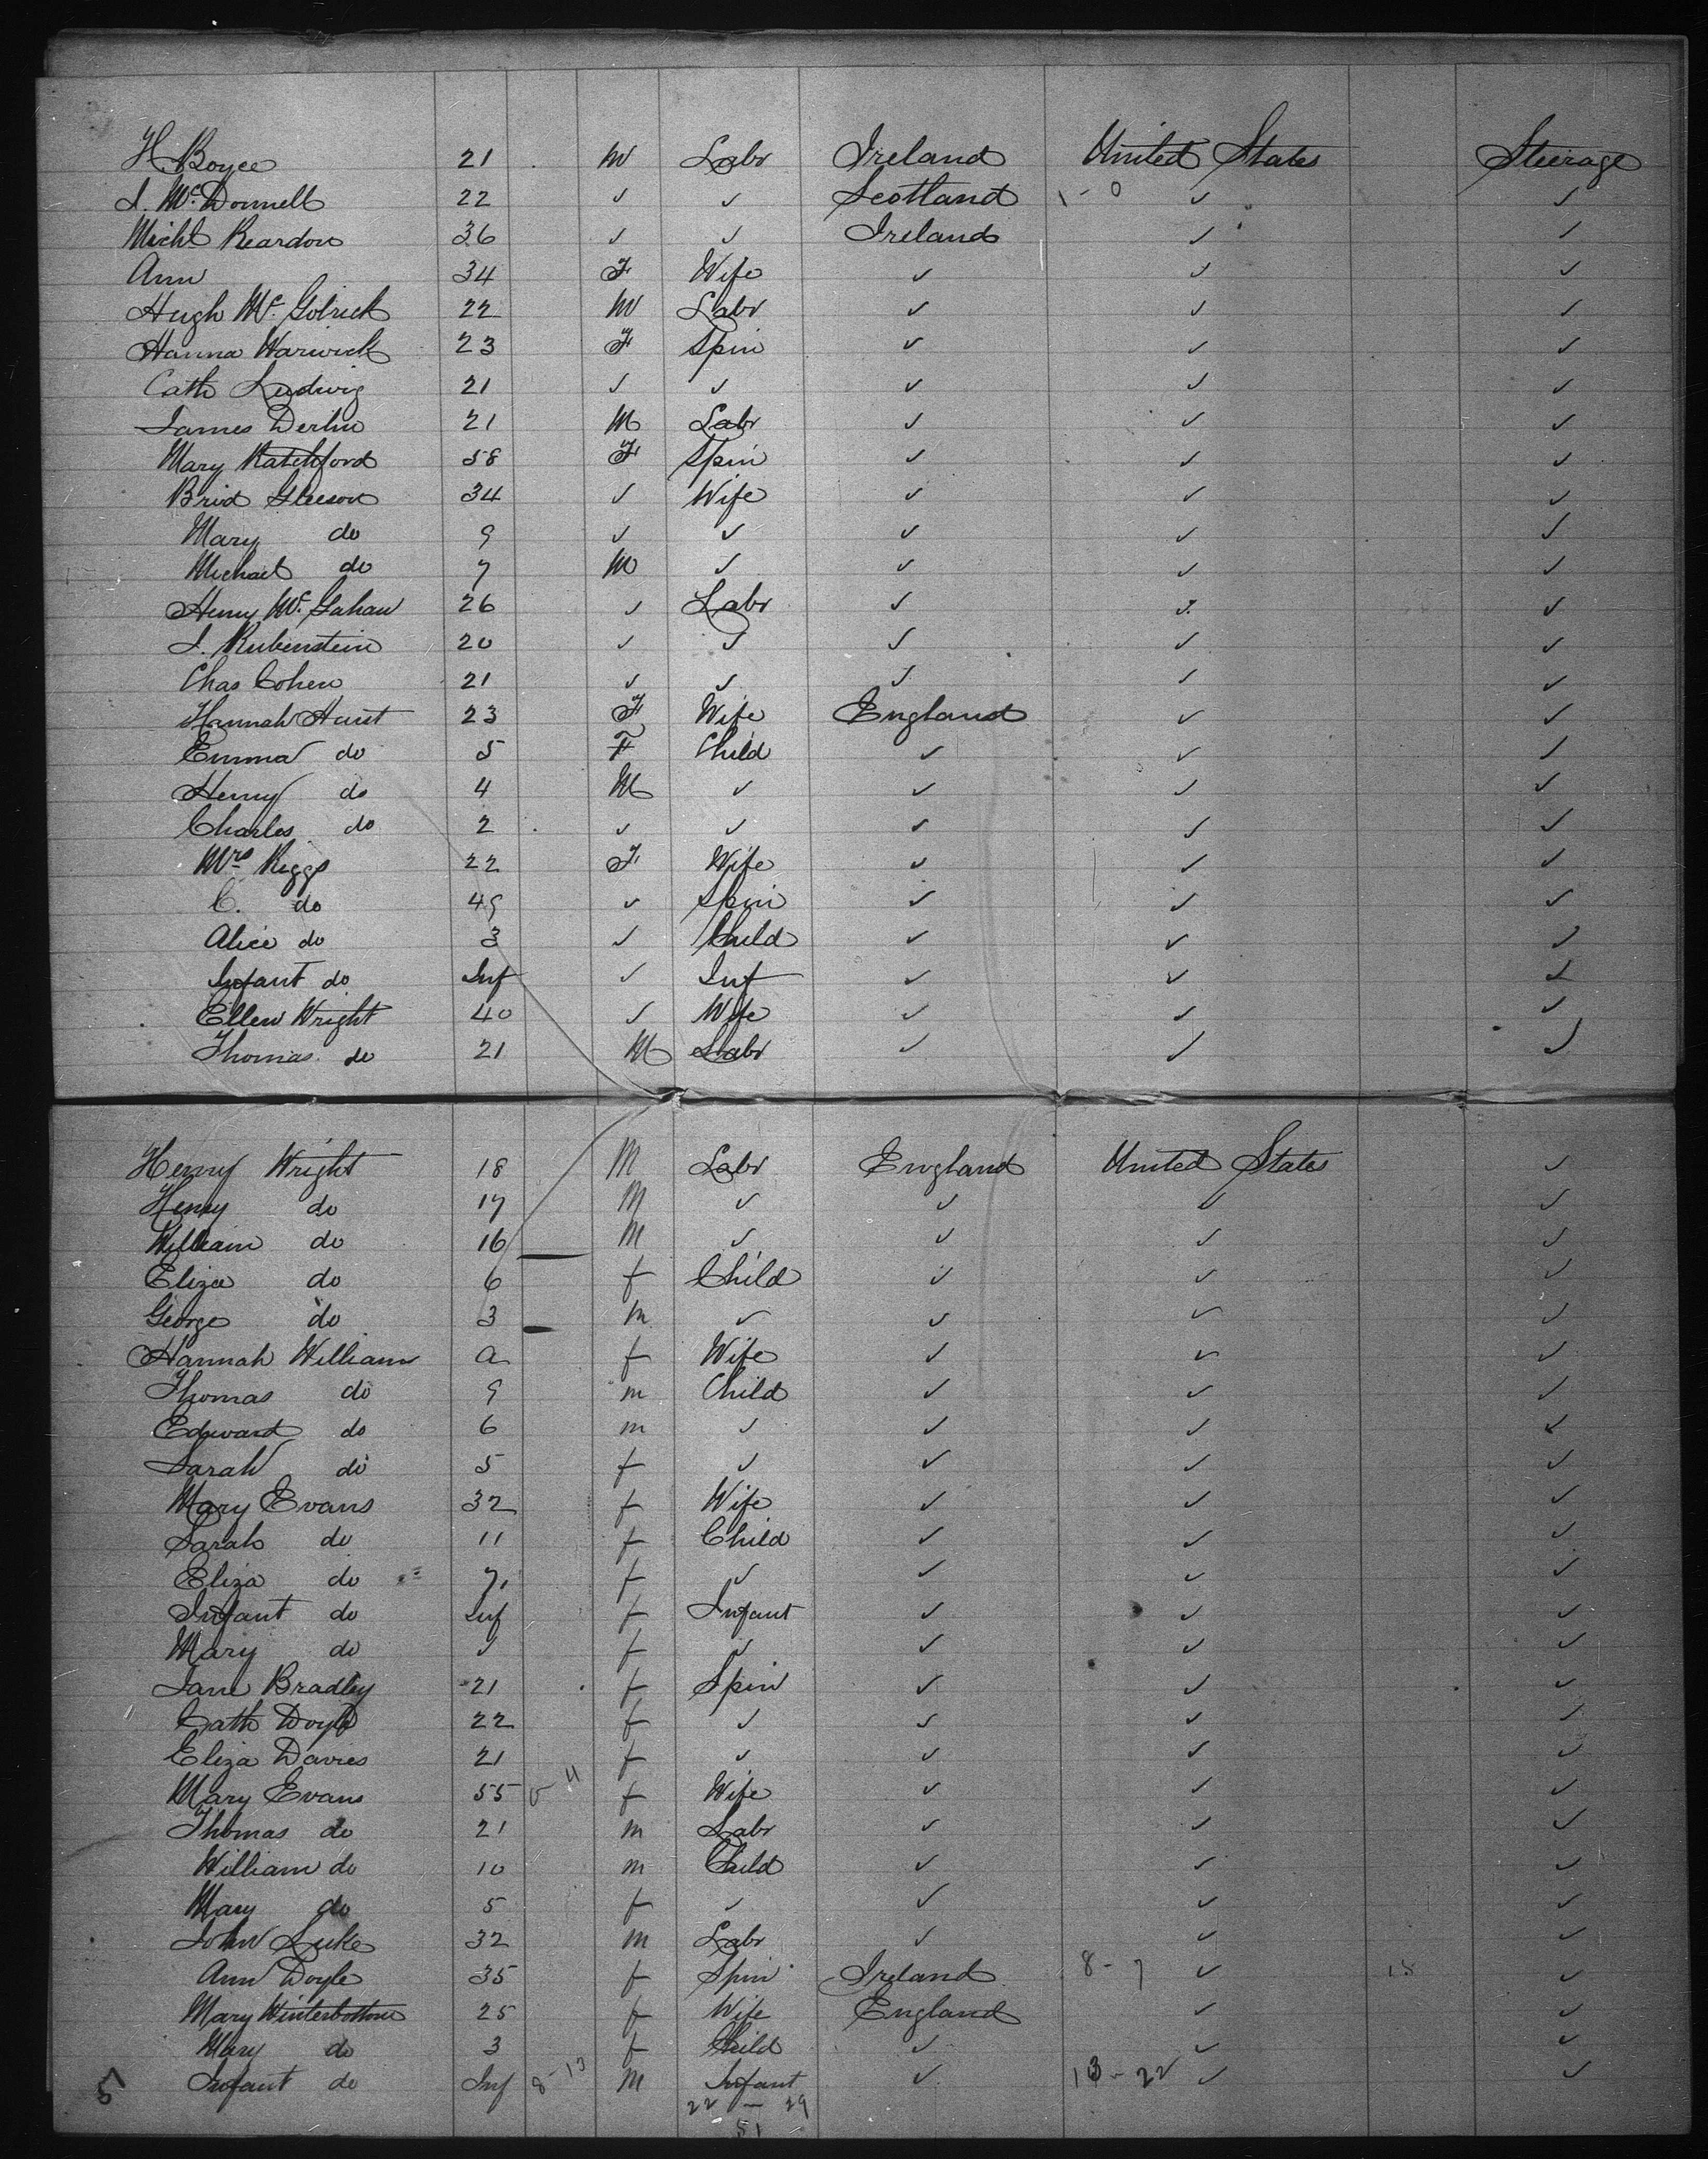 H Boyce 21 M Labr Ireland United States Steerage
J. McDonnell 22 ✓ ✓ Scotland 1-0 ✓ ✓
Michl Reardon 36 ✓ ✓ Ireland ✓ ✓
Ann 34 F Wife ✓ ✓ ✓
Hugh Mc Golrick 22 M Labr ✓ ✓ ✓
Hanna Warwick 23 F Spin ✓ ✓ ✓
Cath Ludwig 21 ✓ ✓ ✓ ✓ ✓
James Derlin 21 M Labr ✓ ✓ ✓
Mary Ratchford 58 F Spin ✓ ✓ ✓
Brid Gleeson 34 ✓ Wife ✓ ✓ ✓
Mary do 9 ✓ ✓ ✓ ✓ ✓
Michael do 7 M ✓ ✓ ✓ ✓
Henry Mc Gahan 26 ✓ Labr ✓ ✓ ✓
J. Rubenstein 20 ✓ ✓ ✓ ✓ ✓
Chas Cohen 21 ✓ ✓ ✓ ✓ ✓
Hannah Hunt 23 F Wife England ✓ ✓
Emma do 5 F Child ✓ ✓ ✓
Henry do 4 M ✓ ✓ ✓ ✓
Charles do 2 ✓ ✓ ✓ ✓ ✓
Mrs Riggs 22 F Wife ✓ ✓ ✓
C. do 49 ✓ Spin ✓ ✓ ✓
Alice do 3 ✓ Child ✓ ✓ ✓
Infant do Inf ✓ Inf ✓ ✓ ✓
Ellen Wright 40 ✓ Wife ✓ ✓ ✓
Thomas do 21 M Labr ✓ ✓ ✓
Henry Wright 18 M Labr England United States ✓
Henry do 17 M ✓ ✓ ✓ ✓
William do 16 M ✓ ✓ ✓ ✓
Eliza do 6 f Child ✓ ✓ ✓
George do 3 m ✓ ✓ ✓ ✓
Hannah William a f Wife ✓ ✓ ✓
Thomas do 9 m Child ✓ ✓ ✓
Edward do 6 m ✓ ✓ ✓ ✓
Sarah do 5 f ✓ ✓ ✓ ✓
Mary Evans 32 f Wife ✓ ✓ ✓
Sarah do 11 f Child ✓ ✓ ✓
Eliza do 7 f ✓ ✓ ✓ ✓
Infant do Inf f Infant ✓ ✓ ✓
Mary do ✓ f ✓ ✓ ✓ ✓
Jane Bradley 21 f Spin ✓ ✓ ✓
Cath Doyle 22 f ✓ ✓ ✓ ✓
Eliza Davies 21 f ✓ ✓ ✓ ✓
Mary Evans 55 f Wife ✓ ✓ ✓
Thomas do 21 m Labr ✓ ✓ ✓
William do 10 m Child ✓ ✓ ✓
Mary do 5 f ✓ ✓ ✓ ✓
John Luke 32 m Labr ✓ ✓ ✓
Ann Doyle 35 f Spin Ireland 8-7 ✓ 15 ✓
Mary Winterbottom 25 f Wife England ✓ ✓
Mary do 3 f Child ✓ ✓ ✓
Infant do Inf 8-13 M Infant ✓ 13-22 ✓ ✓
22 - 29
51
5